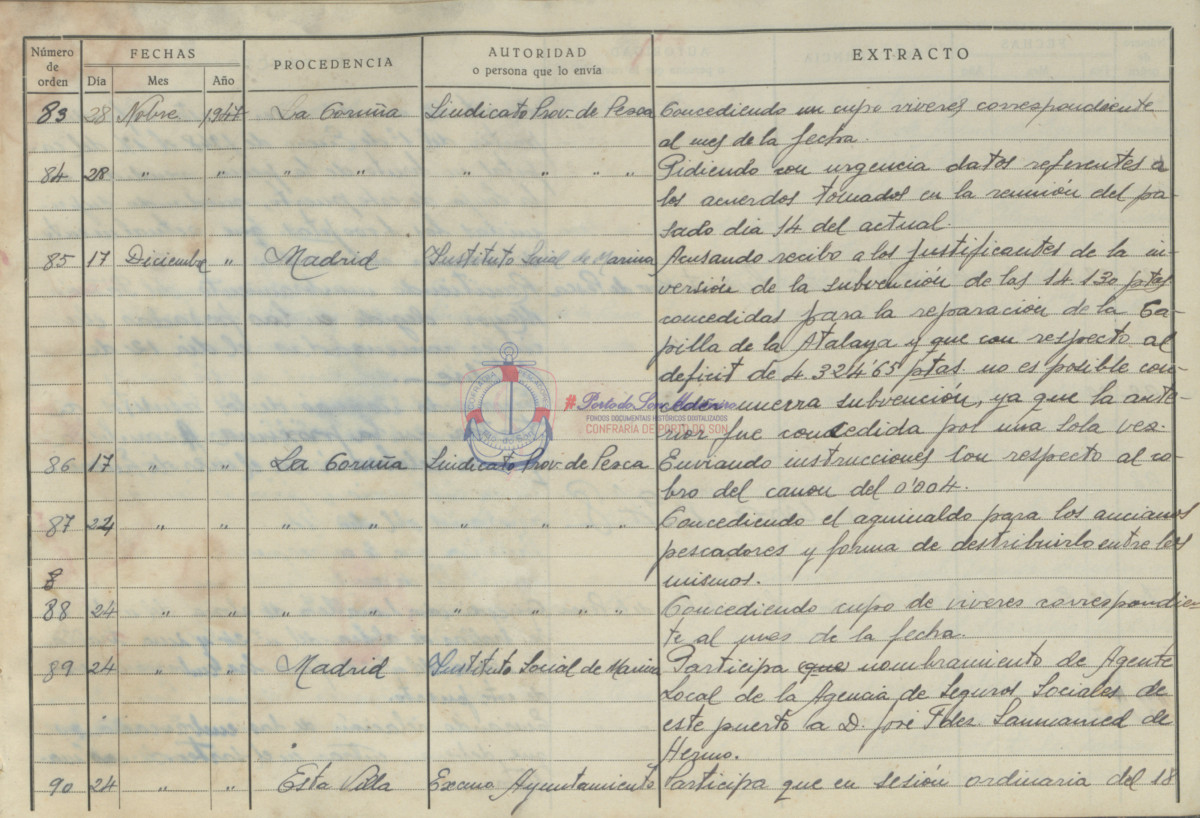 Número de orden FECHAS Día Mes Año PROCEDENCIA AUTORIDAD o persona que lo envía EXTRACTO
83 28 Nobre 1947 La Coruña Sindicato Prov. de Pesca Concediendo un cupo viveres correspondiente
al mes de la fecha.
84 28 " " " " " " " Pidiendo con urgencia datos referentes a
los acuerdos tomados en la reunión del pa-
sado dia 14 del actual.
85 17 Diciembre " Madrid Instituto Social de Marina Acusando recibo a los justificantes de la in-
versión de la subvención de las 14.130 ptas
concedidas para la reparación de la Ca-
pilla de la Atalaya y que con respecto al
deficit de 4.324'65 ptas. no es posible con-
ceder nueva subvención, ya que la ante-
rior fue concedida por una sola vez.
#PortodoSonMariñeiro
FONDOS DOCUMENTAIS HISTÓRICOS DIGITALIZADOS
CONFRARÍA DE PORTO DO SON
86 17 " " La Coruña Sindicato Prov. de Pesca Enviando instrucciones con respecto al co-
bro del canon del 0'004.
87 22 " " " " " " " Concediendo el aguinaldo para los ancianos
pescadores y forma de destribuirlo entre los
8 mismos.
88 24 " " " " " " " Concediendo cupo de viveres correspondien-
te al mes de la fecha.
89 24 " " Madrid Instituto Social de Marina Participa que nombramiento de Agente
Local de la Agencia de Seguros Sociales de
este puerto a D. José Fdez. Sanmamed de
Hermo.
90 24 " " Esta Villa Excmo Ayuntamiento Participa que en sesión ordinaria del 18